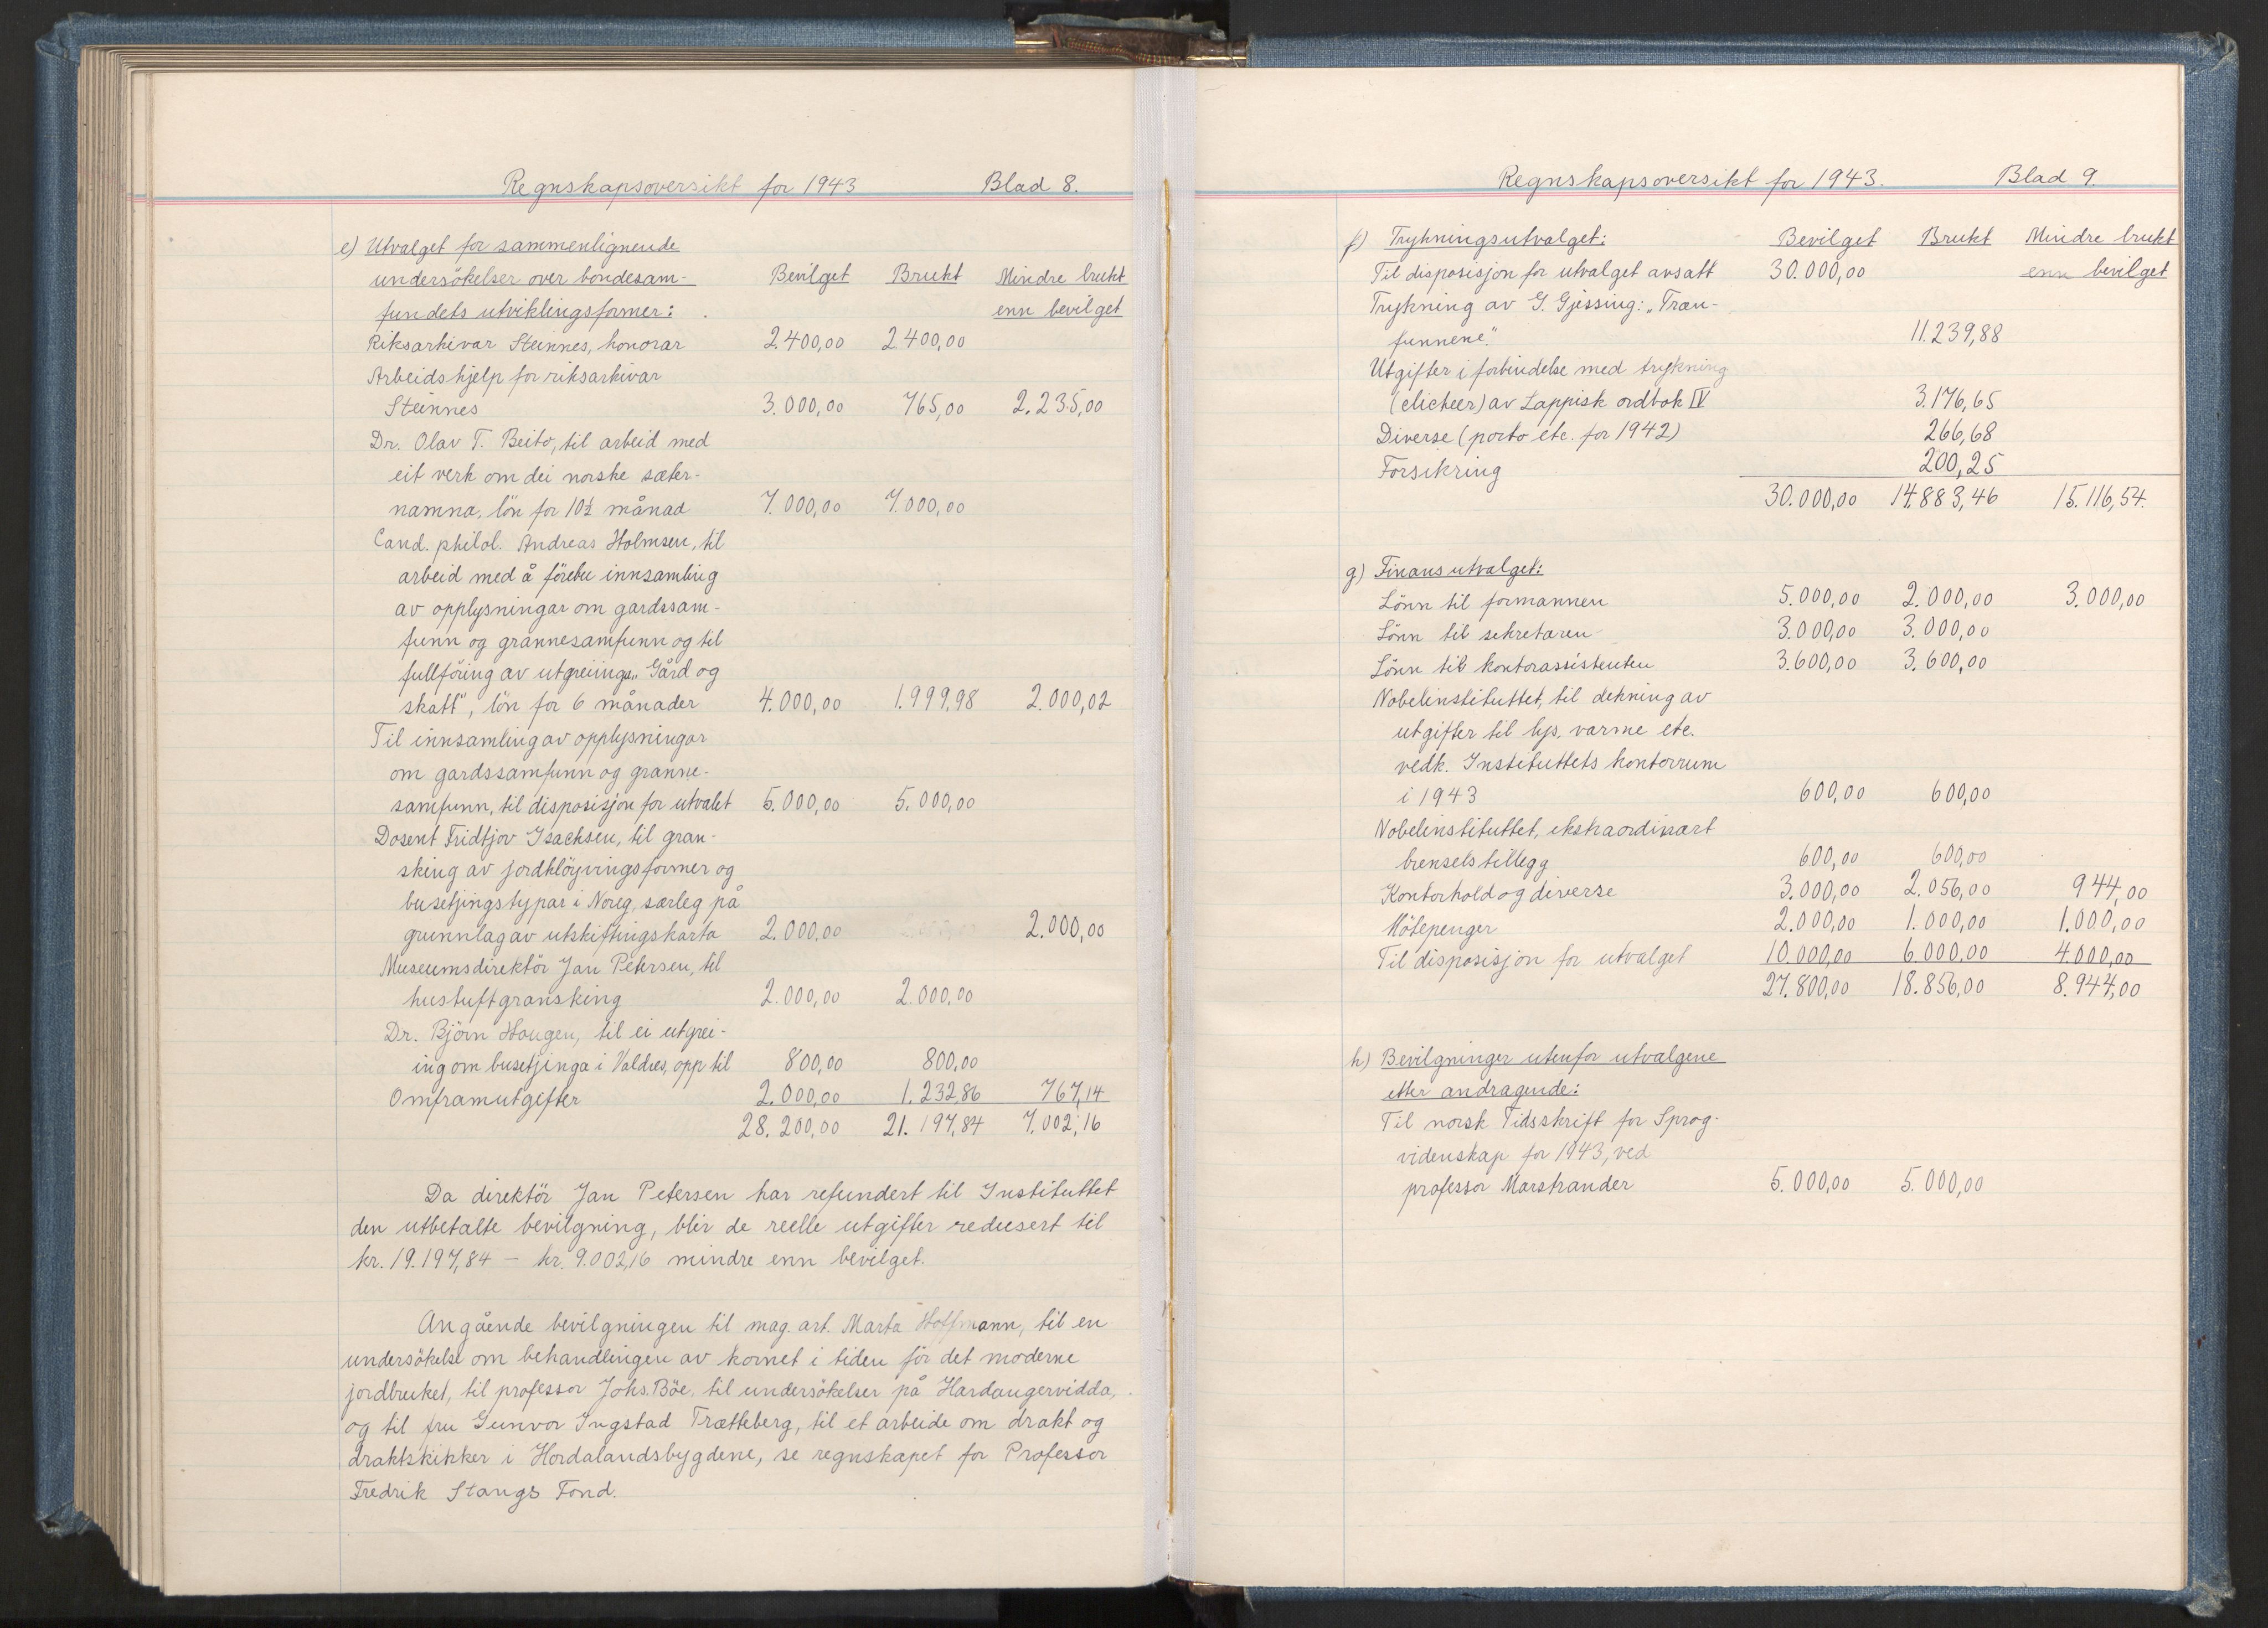 Regnskapsoversikt for 1943 Blad 8.
e) Utvalget for sammenlignende
undersökelser over bondesam- Bevilget Brukt Mindre brukt
fundets utviklingsformer: enn bevilget
Riksarkivar Steinnes, honorar 2.400,00 2.400,00
Arbeidshjelp for riksarkivar
Steinnes 3.000,00 765,00 2.235,00
Dr. Olav T. Beito, til arbeid med
eit verk om dei norske sæter-
namna, lön for 10½ månad 7.000,00 7.000,00
Cand. philol. Andreas Holmsen, til
arbeid med å förebu innsamling
av opplysningar om gardssam-
funn og grannesamfunn og til
fullföring av utgreiinga „Gård og
skatt", lön for 6 månader 4.000,00 1.999,98 2.000,02
Til innsamling av opplysningar
om gardssamfunn og granne-
samfunn, til disposisjon for utvalet 5.000,00 5.000,00
Dosent Fridtjov Isachsen, til gran-
sking av jordklöyvingsformer og
busetjingstypar i Noreg, særleg på
grunnlag av utskiftingskarta 2.000,00 2.000,00
Museumsdirektör Jan Petersen, til
hustuftgransking 2.000,00 2.000,00
Dr. Björn Hougen, til ei utgrei-
ing om busetjinga i Valdres, opp til 800,00 800,00
Omframutgifter 2.000,00 1.232,86 767,14
28.200,00 21.197,84 7.002,16
Da direktör Jan Petersen har refundert til Instituttet
den utbetalte bevilgning, blir de reelle utgifter redusert til
kr. 19.197,84 – kr. 9.002,16 mindre enn bevilget.
Angående bevilgningen til mag. art. Marta Hoffmann, til en
undersökelse om behandlingen av kornet i tiden för det moderne
jordbruket, til professor Johs. Böe, til undersökelser på Hardangervidda,
og til fru Gunvor Ingstad Trætteberg, til et arbeide om drakt og
draktskikker i Hordalandsbygdene, se regnskapet for Professor
Fredrik Stangs Fond.
Regnskapsoversikt for 1943. Blad 9.
f) Trykningsutvalget: Bevilget Brukt Mindre brukt
Til disposisjon for utvalget avsatt 30.000,00 enn bevilget
Trykning av G. Gjessing: „Træn-
funnene." 11.239,88
Utgifter i forbindelse med trykning
(clicheer) av Lappisk ordbok IV 3.176,65
Diverse (porto etc. for 1942) 266,68
Forsikring 200,25
30.000,00 14.883,46 15.116,54.
g) Finansutvalget:
Lönn til formannen 5.000,00 2.000,00 3.000,00
Lönn til sekretæren 3.000,00 3.000,00
Lönn til kontorassistenten 3.600,00 3.600,00
Nobelinstituttet, til dekning av
utgifter til lys, varme etc.
vedk. Instituttets kontorrum
i 1943 600,00 600,00
Nobelinstituttet, ekstraordinært
brenselstillegg 600,00 600,00
Kontorhold og diverse 3.000,00 2.056,00 944,00
Mötepenger 2.000,00 1.000,00 1.000,00
Til disposisjon for utvalget 10.000,00 6.000,00 4.000,00
27.800,00 18.856,00 8.944,00
h) Bevilgninger utenfor utvalgene
etter andragende:
Til norsk Tidsskrift for Sprog-
videnskap for 1943, ved
professor Marstrander 5.000,00 5.000,00